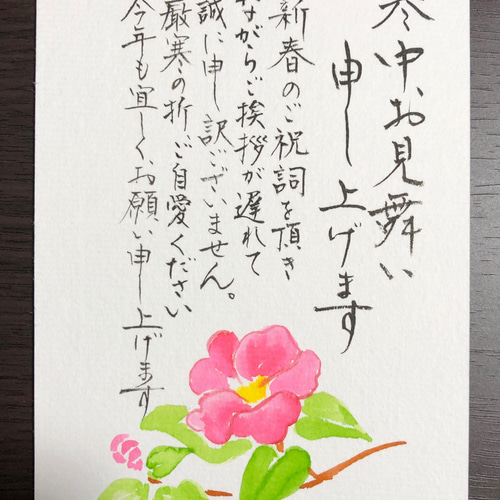 寒中お見舞い
申し上げます
新春のご祝詞を頂き
ながらご挨拶が遅れて
誠に申し訳ございません。
厳寒の折、ご自愛ください
今年も宜しくお願い申し上げます